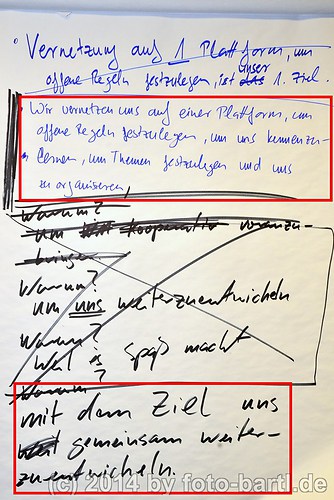 • Vernetzung auf 1 Plattform, um
offene Regeln festzulegen, ist das unser 1. Ziel
• Wir vernetzen uns auf einer Plattform, um
offene Regeln festzulegen, um uns kennenzu-
• lernen, um Themen festzulegen und uns
zu organisieren,
Warum?
um kooperativ voranzu-
bringen
Warum?
um uns weiterzuentwickeln
Warum?
Weil es Spaß macht
Warum?
mit dem Ziel uns
weil gemeinsam weiter-
zuentwickeln.
(c) 2014 by foto-bartl.de